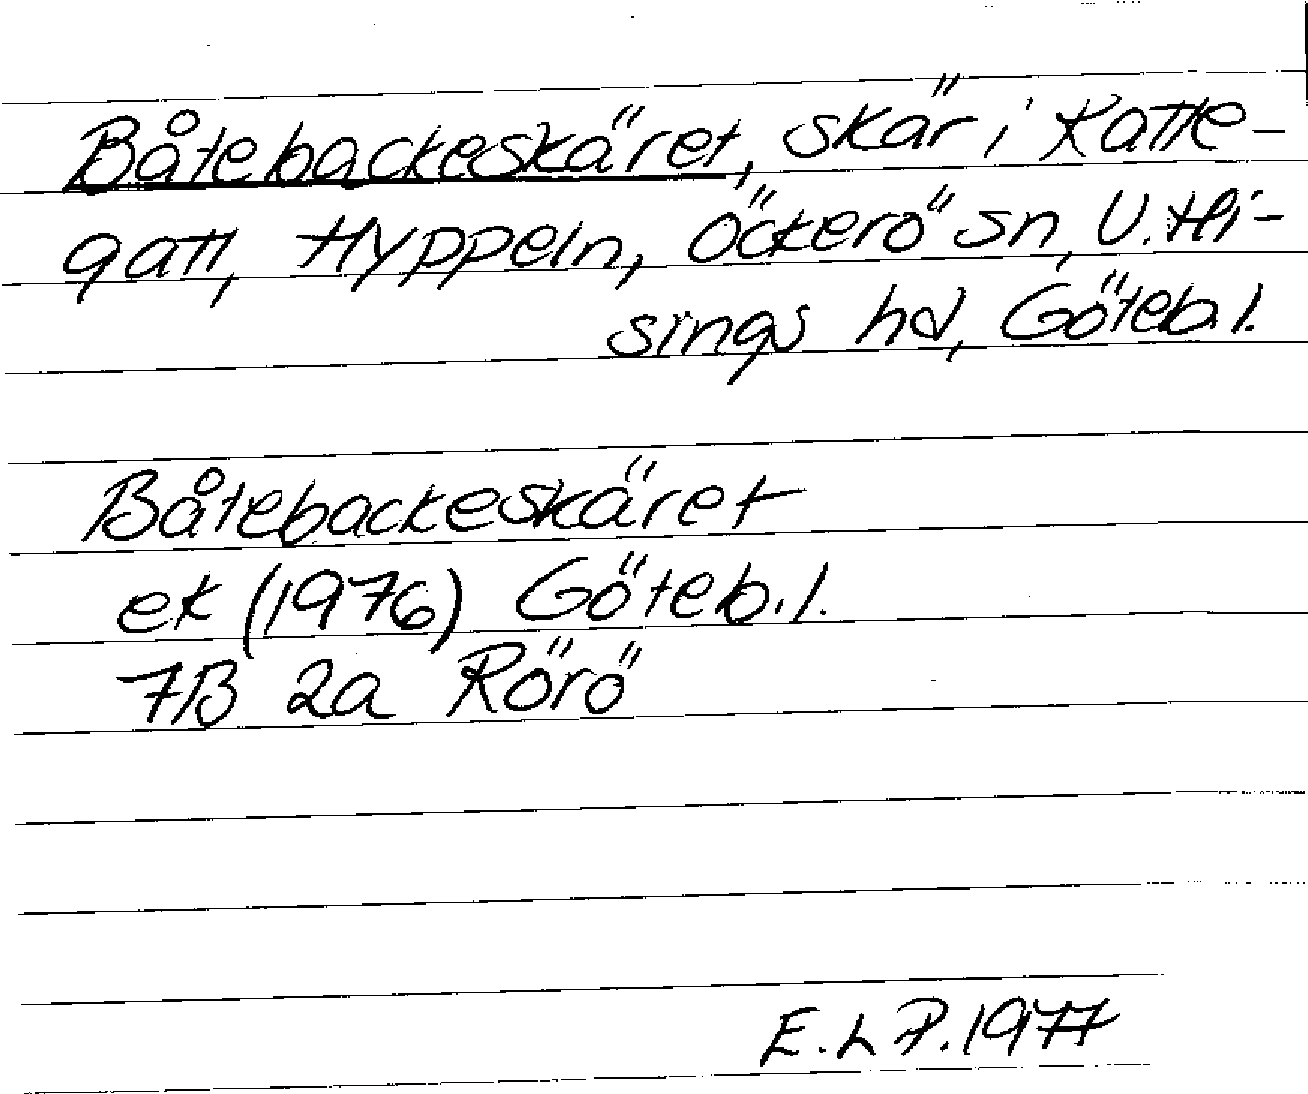 Båtebackeskäret, skär i Katte-
gatt, Hyppeln, Öckerö sn, V. Hi-
sings hd, Göteb. l.
Båtebackeskäret
ek (1976) Göteb. l.
7B 2a Rörö
E. L P. 1977